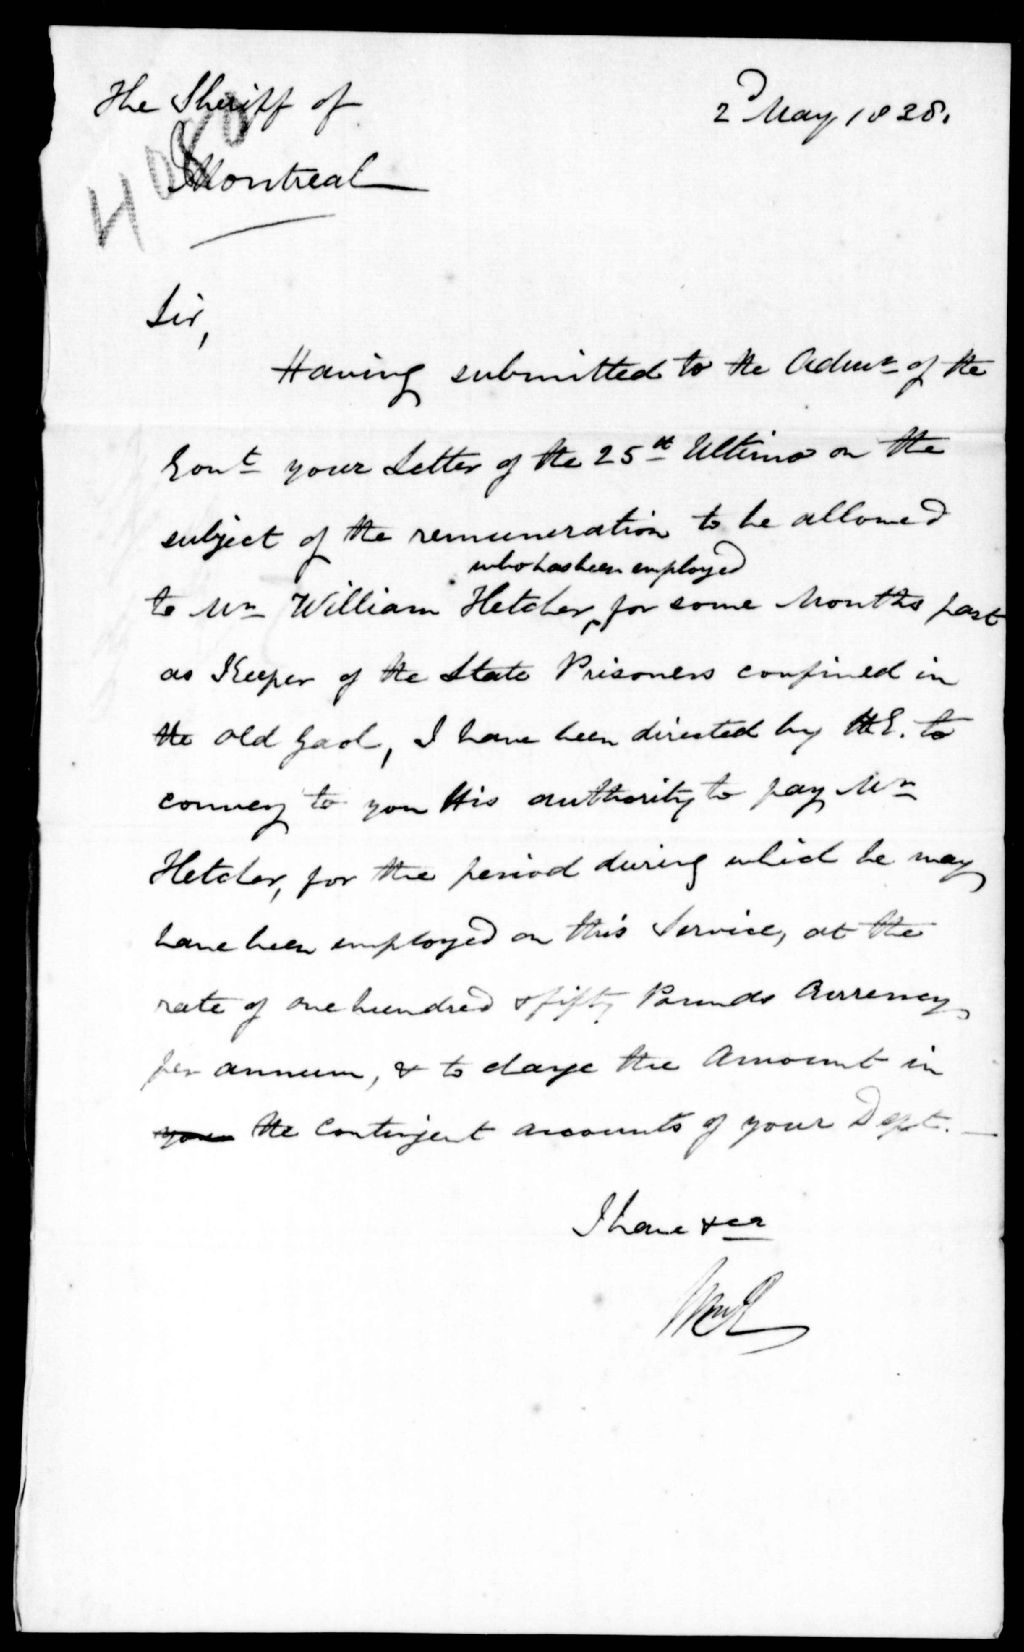 The Sheriff of
2d May 1838.
Montreal
Sir,
Having submitted to the Admr of the
Govt your Letter of the 25th Ultimo on the
subject of the remuneration to be allowed
who has been employed
to Mr William Hetcher, for some Months past
as Keeper of the State Prisoners confined in
the old Gaol, I have been directed by H.E. to
convey to you His authority to pay Mr
Hetcher, for the period during which he may
have been employed on this Service, at the
rate of one hundred & fifty Pounds Currency
per annum, & to charge the Amount in
your the Contingent accounts of your Dept.
I have &ca